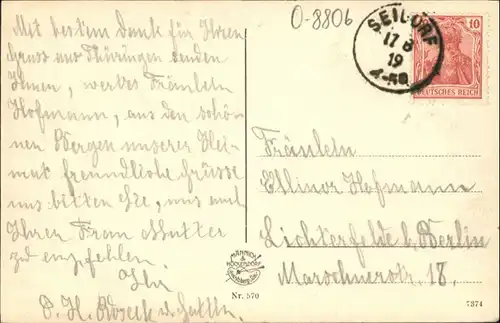 Mit bestem Dank für Ihren
Gruss aus Thüringen senden
Ihnen, wertes Fräulein
Hofmann, aus den schö-
nen Bergen unserer Hei-
mat freundliche Grüsse
uns bitten Sie, uns auch
Ihrer Frau Mutter
zu empfehlen.
Ihr
O-8806
SEIDORF
17 8
19
DEUTSCHES REICH
10
Fräulein
Ellinor Hofmann
Lichterfelde b/Berlin
Marschnerstr. 18.
Nr. 570
7374